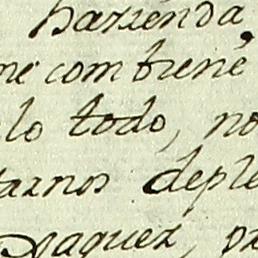 hazienda,
me combiene
lo todo, no
tarnos deple
Jaquez, pr